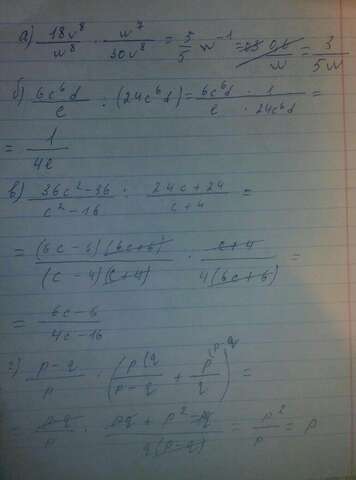 а) 18v⁸/w⁸ · w⁷/30v⁸ = 3/5 w⁻¹ = = 3/5w
б) 6c⁶d/e : (24c⁶d) = 6c⁶d · 1/e · 24c⁶d =
= 1/4e
в) 36c²-36/c²-16 : 24c+24/c+4 =
= (6c-6)(6c+6)/(c-4)(c+4) · c+4/4(6c+6) =
= 6c-6/4c-16
г) p-q/p · (p/p-q + p/q) =
= p-q/p · pq + p² - pq/q(p-q) = p²/p = p